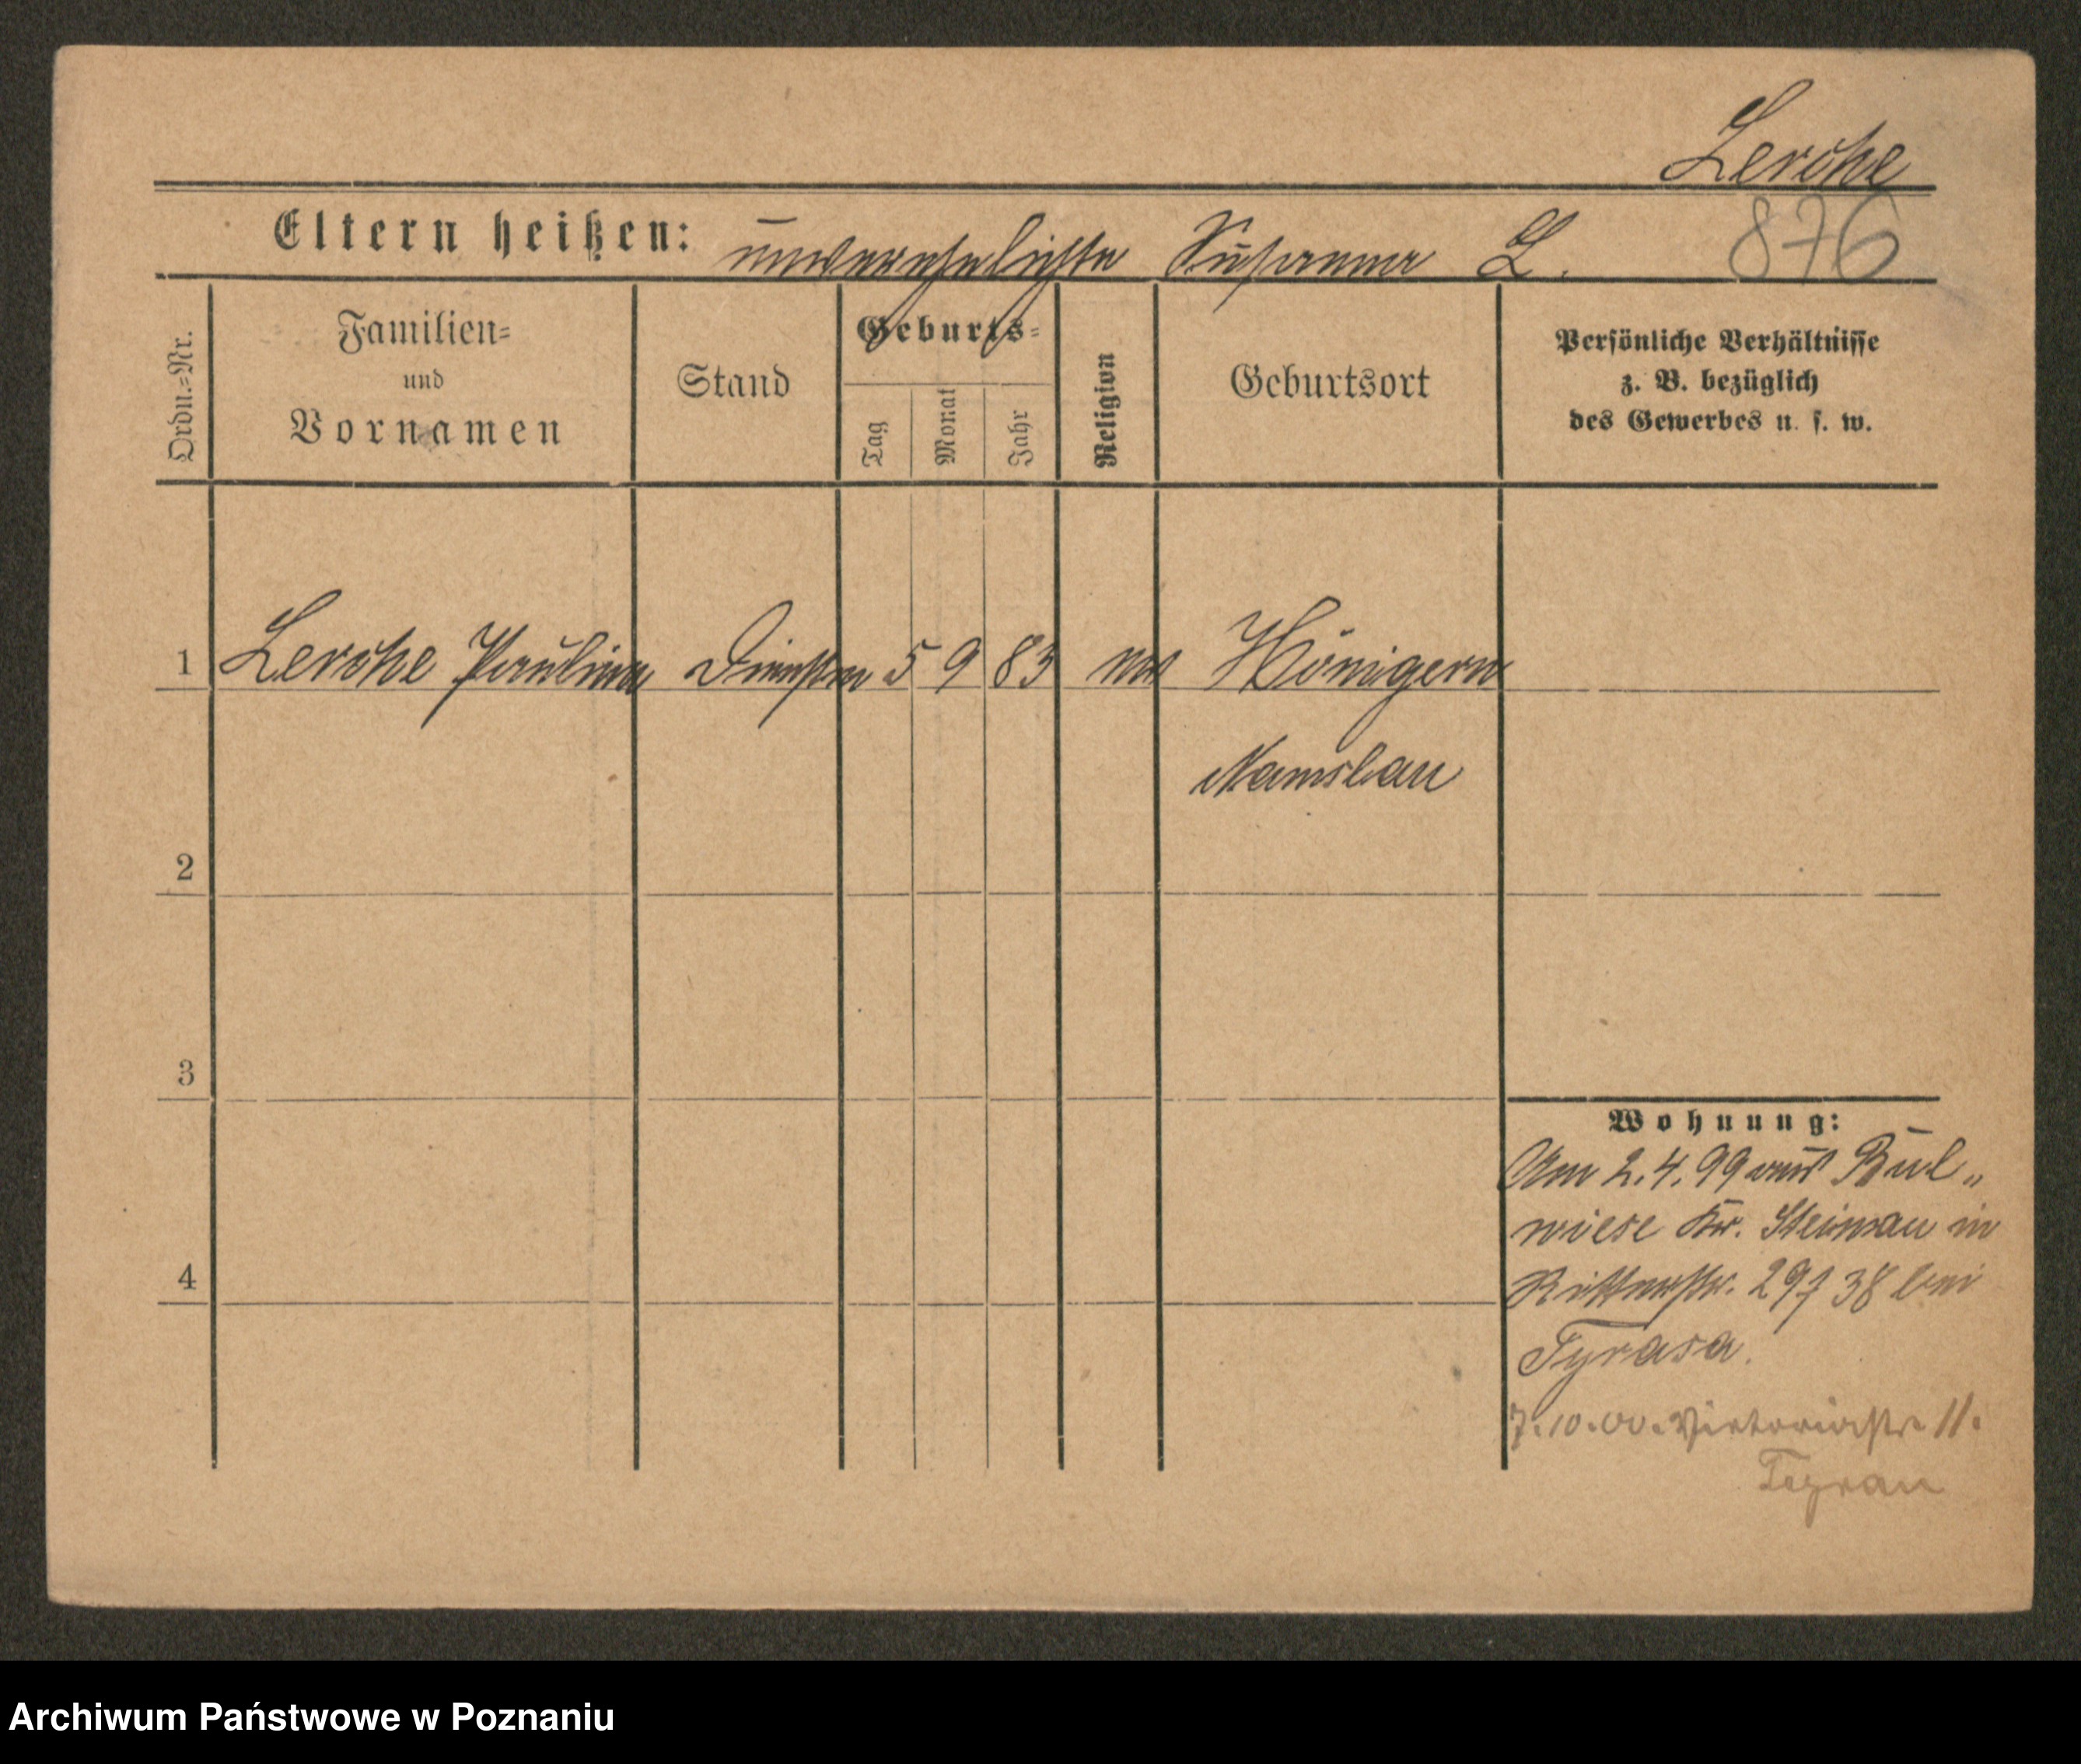 Lerche
Eltern heißen: unverehelichte Susanna L.
876
Ordn.=Nr.
Familien=
und
Vornamen
Stand
Geburts=
Tag
Monat
Jahr
Religion
Geburtsort
Persönliche Verhältnisse
z. B. bezüglich
des Gewerbes u. s. w.
1 Lerche Pauline 5 9 83 ev Hönigern
Namslau
2
3
4
Wohnung:
Am 2.4.99 aus Bul„
wiese Kr. Steinau in
Ritterstr. 38 bei
Tyrasa.
7.10.00. Viktoriastr 11.
Archiwum Państwowe w Poznaniu